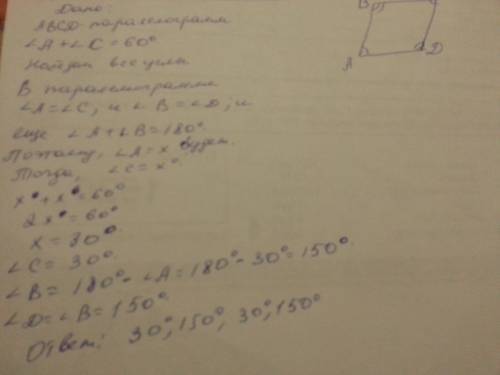 Дано:
ABCD-параллелограмм
∠A+∠C=60°
Найти все углы
В параллелограмме
∠A=∠C, и ∠B=∠D; и
еще ∠A+∠B=180°
Поэтому, ∠A=x будет.
Тогда, ∠C=x°
x°+x°=60°
2x°=60°
x=30°
∠C=30°
∠B=180°-∠A=180°-30°=150°
∠D=∠B=150°
Ответ: 30°; 150°, 30°; 150°
B
A
D